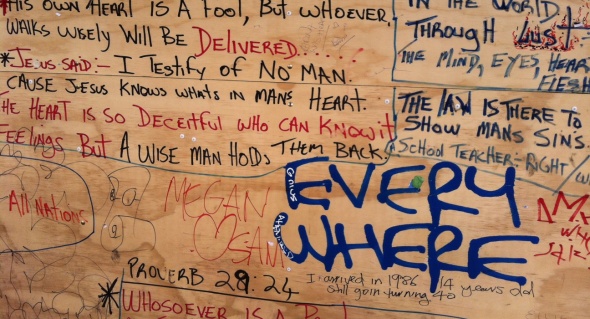 HIS OWN HEART IS A FOOL, BUT WHOEVER.
WALKS WISELY WILL BE DELIVERED......
*JESUS SAID:- I TESTIFY OF NO MAN.
CAUSE JESUS KNOWS WHATS IN MANS HEART.
THE HEART IS SO DECEITFUL WHO CAN KNOW it
FEELINGS BUT A WISE MAN HOLDS THEM BACK.
IN THE WORLD
THROUGH LUST
THE MIND, EYES, HEAR
FLESH
THE LAW IS THERE TO
SHOW MANS SINS.
A SCHOOL TEACHER - RIGHT /
All NATIONS
MEGAN
EVERY
WHERE
I arrived in 1986 14 years old.
still goin turning 40
PROVERB 28:24
*WHOSOEVER IS A